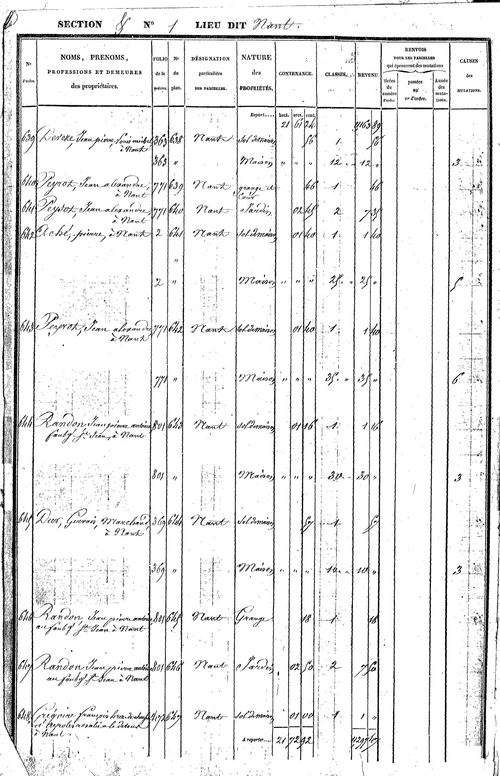 SECTION N° 1 LIEU DIT Nant.
N° d'ordre.
NOMS, PRENOMS, PROFESSIONS ET DEMEURES des propriétaires.
FOLIO de la matrice.
N° du plan.
DÉSIGNATION particulière DES PARCELLES.
NATURE des PROPRIÉTÉS.
CONTENANCE.
CLASSES.
REVENU.
RENVOIS POUR LES PARCELLES qui éprouvent des mutations
tirées du numéro d'ordre.
passées au n° d'ordre.
Année des mutations.
CAUSES des MUTATIONS.
hect. ares. cent.
Report 21 61 24 4163 89
639 Jean pierre Louis michel à Nant 363 638 Nant Sol de maison 56 1 56
363 " Maison " " " 12 12 " 3
640 Peyrot, Jean alexandre, à Nant 771 639 Nant grange et Cour 46 1 46
641 Peyrot, Jean alexandre, à Nant 771 640 Nant Jardin 02 45 2 7 35
642 Aché, pierre, à Nant 2 641 Nant Sol de maison 01 40 1 1 40
"
2 Maison " " " 25 25 " 5
643 Peyrot, Jean alexandre à Nant 771 642 Nant Sol de maison 01 40 1 1 40
771 " Maison " " " 35 35 " 6
644 Randon Jean pierre antoine faubg St Jean, à Nant 801 643 Nant Sol de maison 01 16 1 1 16
801 " Maison " " " 30 30 " 3
645 Gervais, Marchand, à Nant 369 644 Nant Sol de maison 57 1 57
369 " Maison " " " 10 10 " 3
646 Randon Jean pierre antoine au faubg St Jean à Nant 801 645 Nant Grange 18 1 18
647 Randon Jean pierre antoine au faubg St Jean à Nant 801 646 Nant Jardin 02 50 2 7 50
648 Grégoire François à Nant 472 647 Nant Sol de maison 01 00 1 1 "
A reporter 21 72 92 4297 67